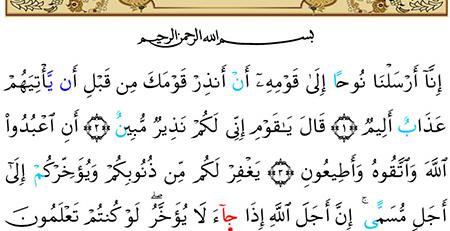 بسم الله الرحمن الرحيم
إِنَّآ أَرْسَلْنَا نُوحًا إِلَىٰ قَوْمِهِۦٓ أَنْ أَنذِرْ قَوْمَكَ مِن قَبْلِ أَن يَّأْتِيَهُمْ
عَذَابٌ أَلِيمٌ ﴿١﴾ قَالَ يَـٰقَوْمِ إِنِّى لَكُمْ نَذِيرٌ مُّبِينٌ ﴿٢﴾ أَنِ ٱعْبُدُوا۟
ٱللَّهَ وَٱتَّقُوهُ وَأَطِيعُونِ ﴿٣﴾ يَغْفِرْ لَكُم مِّن ذُنُوبِكُمْ وَيُؤَخِّرْكُمْ إِلَىٰٓ
أَجَلٍ مُّسَمًّى ۚ إِنَّ أَجَلَ ٱللَّهِ إِذَا جَآءَ لَا يُؤَخَّرُ ۖ لَوْ كُنتُمْ تَعْلَمُونَ